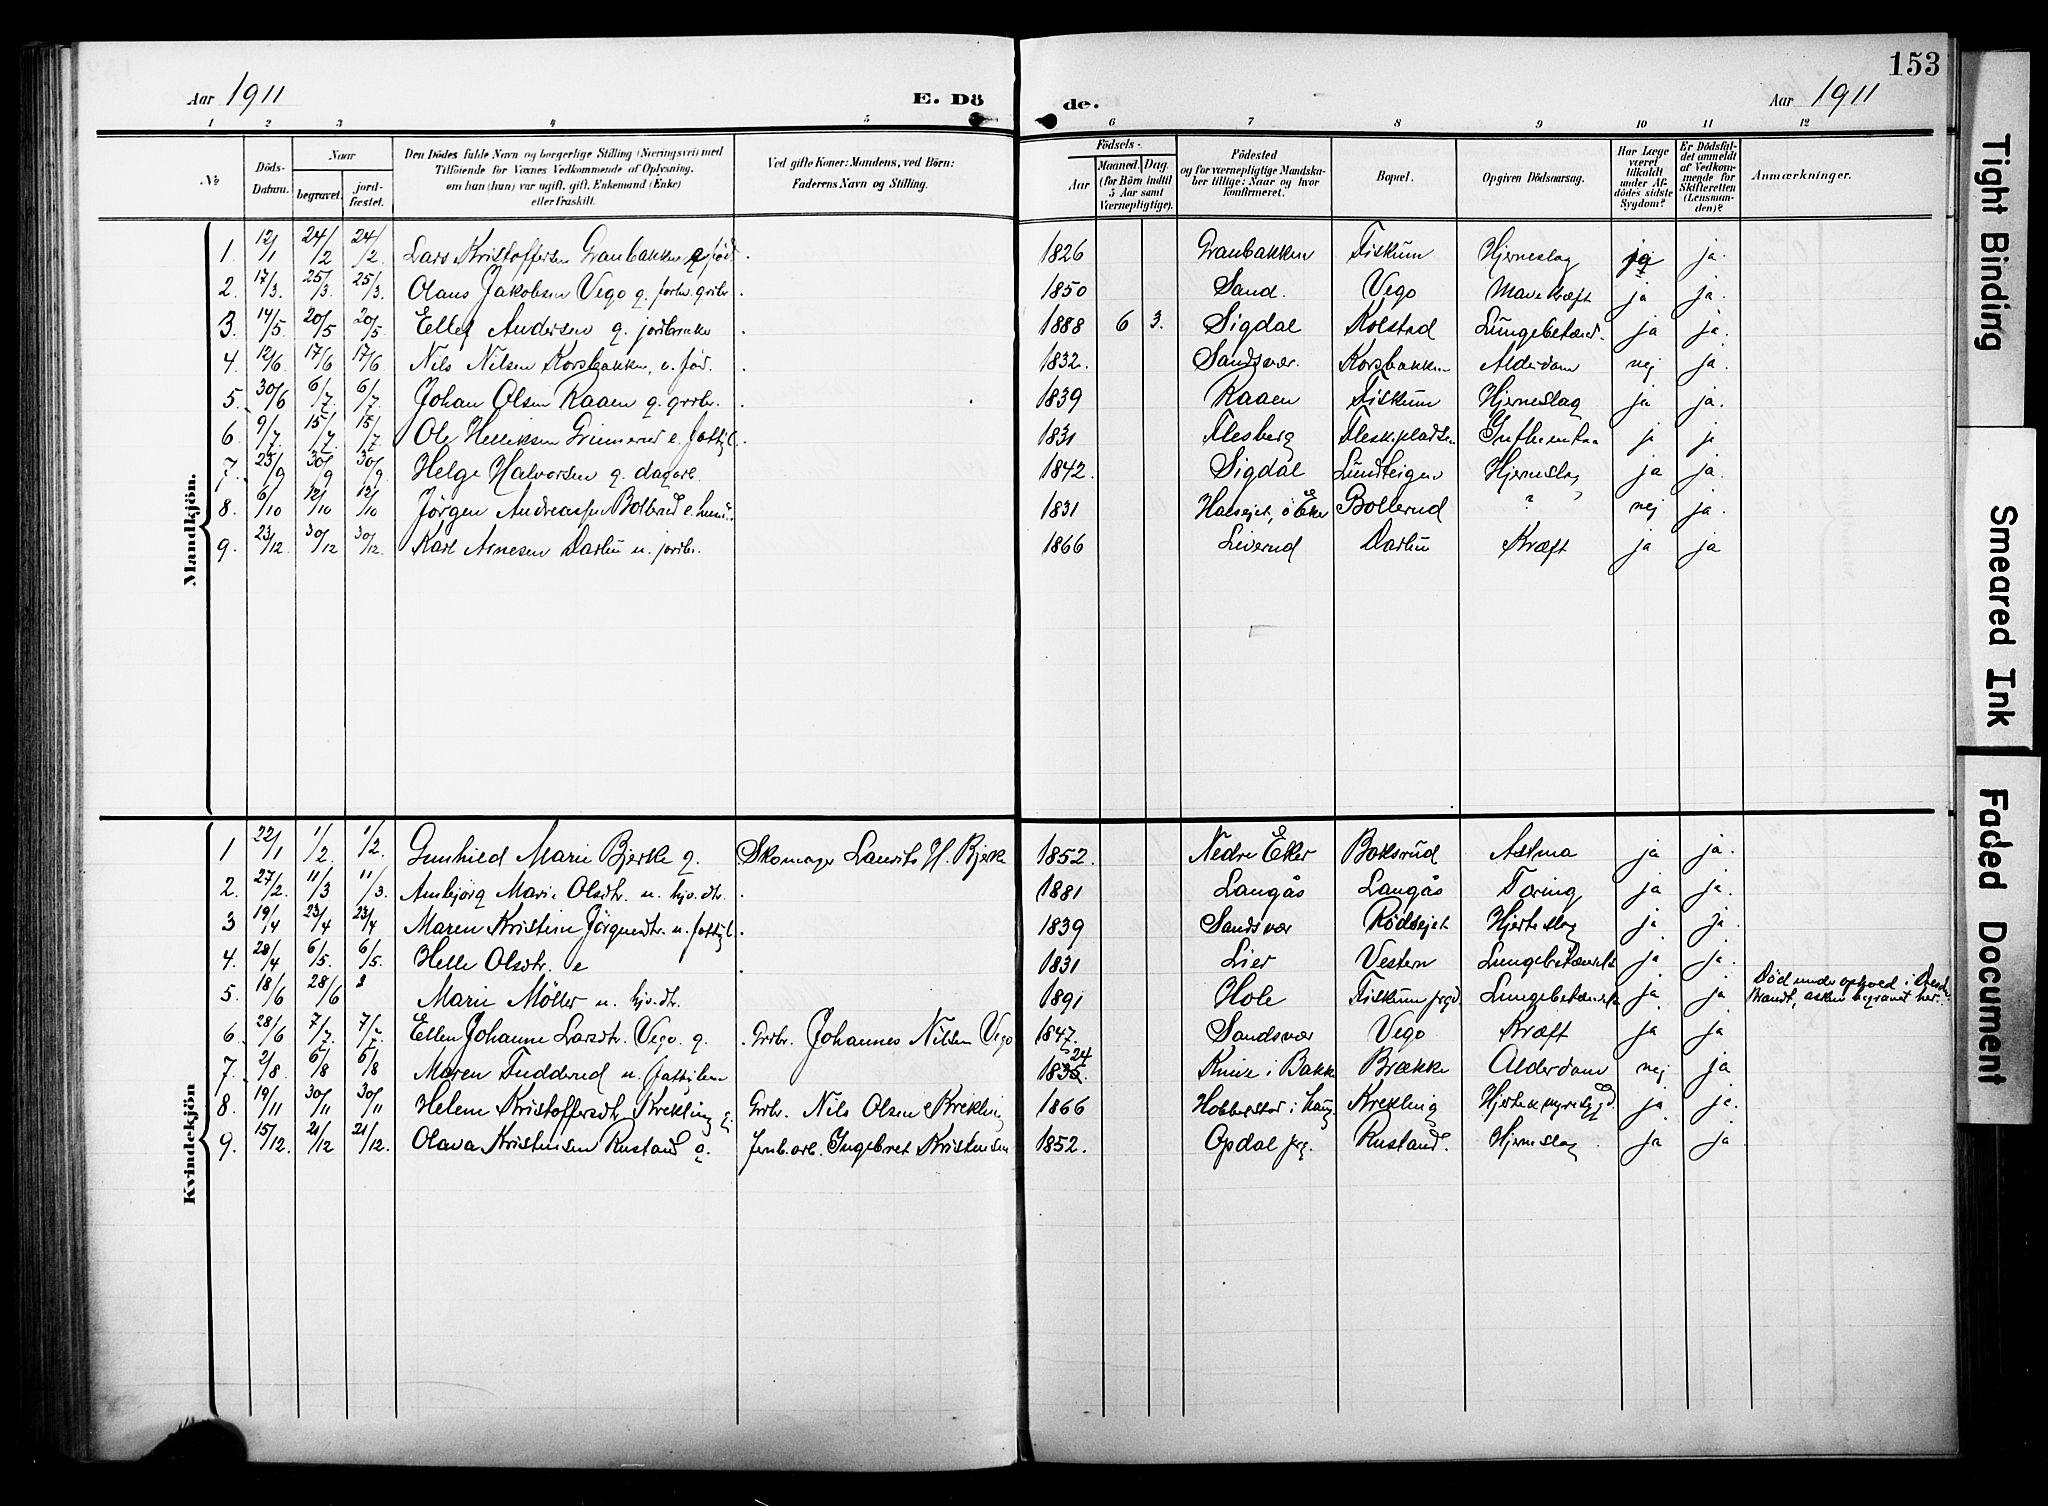 153
Aar 1911
E. Dö de.
Aar 1911
1 2 3 4 5 6 7 8 9 10 11 12
№
Döds-Datum.
Naar
begravet.
jord-fæstet.
Den Dödes fulde Navn og borgerlige Stilling (Næringsvei) med
Tilföiende for Voxnes Vedkommende af Oplysning,
om han (hun) var ugift, gift, Enkemand (Enke)
eller fraskilt.
Ved gifte Koner: Mandens, ved Börn:
Faderens Navn og Stilling.
Födsels-
Aar
Maaned. Dag.
(for Börn indtil
5 Aar samt
Værnepligtige).
Födested
og for værnepligtige Mandska-
ber tillige: Naar og hvor
konfirmeret.
Bopæl.
Opgiven Dödsaarsag.
Har Læge
været
tilkaldt
under Af-
dödes sidste
Sygdom?
Er Dödsfal-
det anmeldt
af Vedkom-
mende for
Skifteretten
(Lensman-
den)?
Anmærkninger.
Mandkjön.
1. 12/1 24/2 24/2. Lars Kristoffersen Granbakken föd. 1826 Granbakken Fiskum Hjerneslag ja ja.
2. 17/3. 25/3. 25/3. Olaus Jakobsen Vego g. forhv. grdbr. 1850 Sand. Vego Mavekræft ja ja.
3. 14/5 20/5 20/5 Ellef Andersen g. jordbruker 1888 6 3. Sigdal Kolstad Lungebetænd. ja ja.
4. 12/6 17/6 17/6 Nils Nilsen Korsbakken, u. föd. 1832. Sandsvær. Korsbakken Alderdom nej ja.
5. 30/6 6/7. 6/7. Johan Olsen Raaen g. grdbr. 1839 Raaen Fiskum Hjerneslag ja ja.
6. 9/7. 15/7. 15/7 Ole Helliksen e. fattigl. 1831 Flesberg Fleskpladsen ja ja
7. 23/9 30/9 30/9 Helge Halvorsen g. dagarb. 1842. Sigdal Lundteigen Hjerneslag ja ja.
8. 6/10 12/10 12/10 Jörgen Andreassen Bollerud e. 1831 ö Eker Bollerud ? nej ja.
9. 23/12. 30/12 30/12. Karl Arnesen Darbu u. jordbr. 1866 Liverud Darbu Kræft ja ja
Kvindekjön
1 22/1 1/2. 1/2. Gunhild Marie Bjerke g. Skomager Laurits H. Bjerke 1852. Nedre Eker Boksrud Astma ja ja.
2. 27/2. 11/3 11/3. Anbjörg Marie Olsdtr. u. hjv. dtr. 1881 Langås Langås Tæring ja ja.
3 19/4 23/4 23/4 Maren Kristine Jörgensdtr. u. fattigl. 1839 Sandsvær Rödsejet Hjerteslag ja ja.
4. 28/4 6/5. 6/5. Helle Olsdtr. e 1831 Lier Vestern Lungebetændelse ja ja.
5. 18/6 28/6 Marie Möller u. hjv. dtr. 1891 Hole Fiskum prgd. Lungebetændelse ja ja Död under ophold i
Brandt, asken begravet her.
6. 28/6 7/7. 7/7. Ellen Johanne Larsdtr. Vego. g. Grdbr. Johannes Nilsen Vego 1847. Sandsvær Vego Kræft ja ja
7. 2/8. 6/8 6/8 Maren Fudderud u. fattiglem 24 Knive i Bakke Brække Alderdom nej ja
8. 19/11 30/11 30/11 Helene Kristoffersdtr. Krekling g Grdbr. Nils Olsen Krekling 1866 Hobbelstad i Krekling ja ja.
9. 15/12. 21/12 21/12. Olava Kristensen Rustand g. Jernb. arb. Ingebret Kristensen 1852. Opdal prg. Rustand. Hjerneslag ja ja
Tight Binding
Smeared Ink
Faded Document